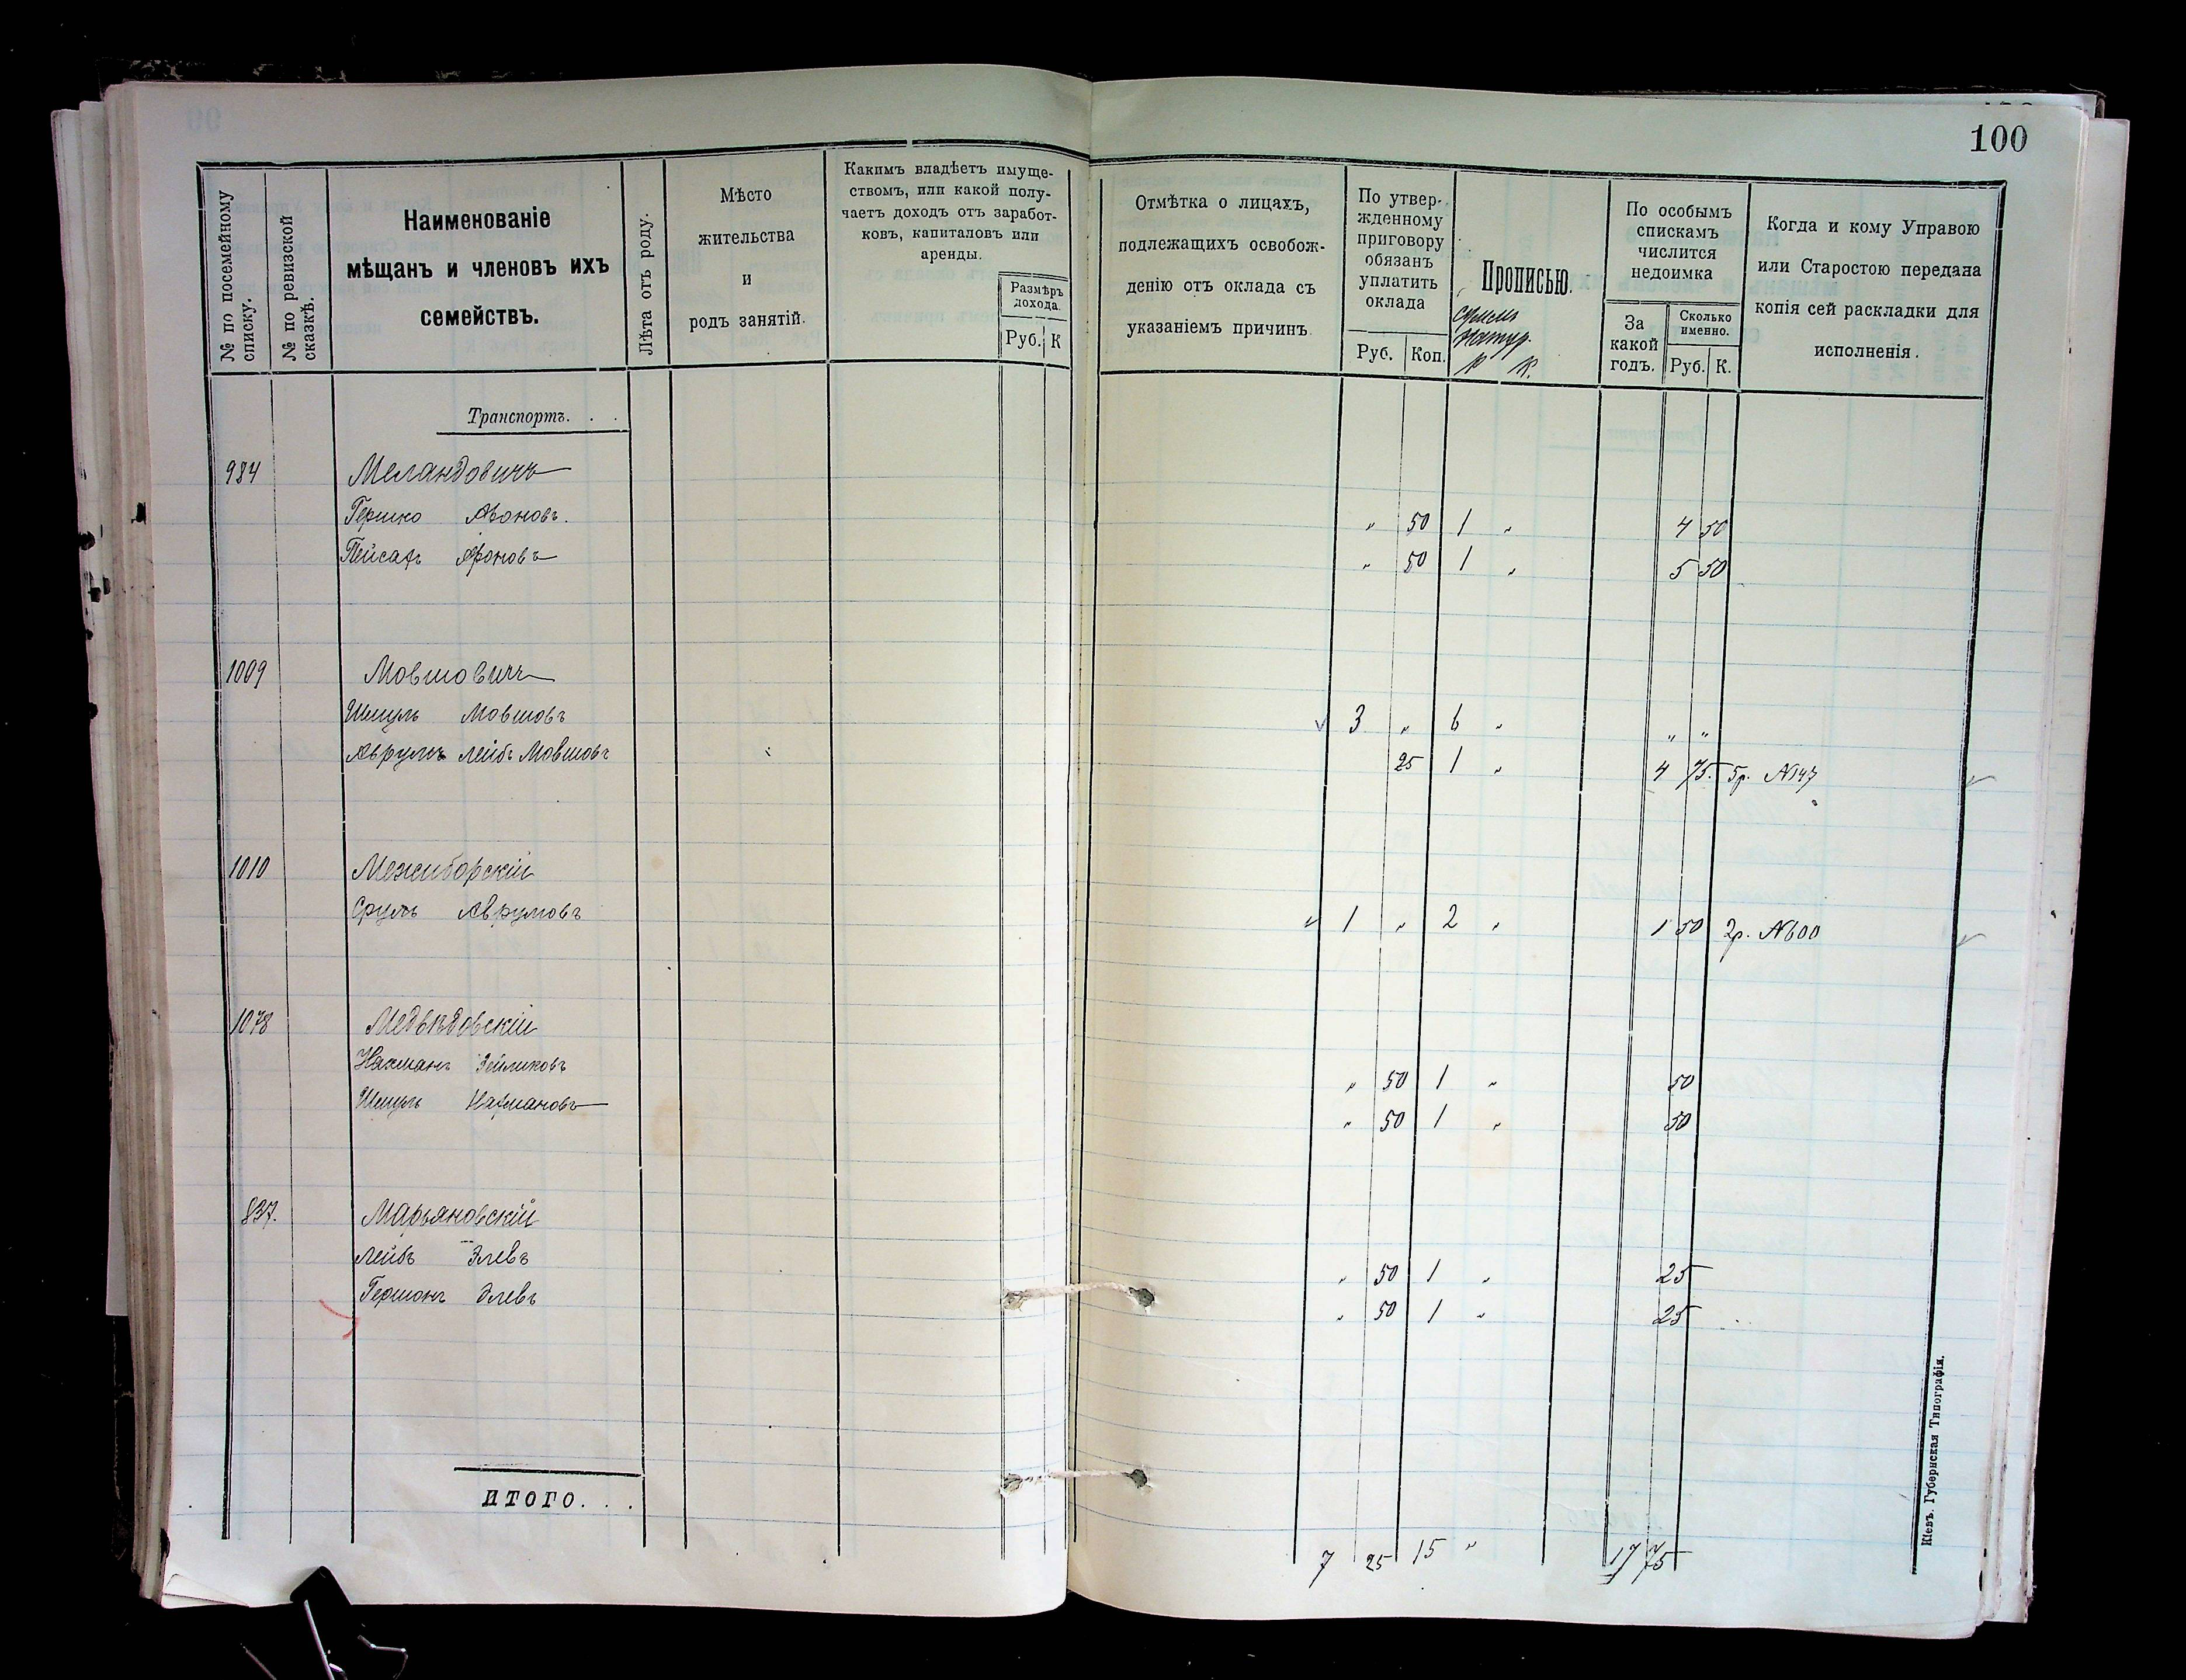 100
№ по посемейному списку.
№ по ревизской сказкѣ.
Наименованіе
мѣщанъ и членовъ ихъ
семействъ.
Лѣта отъ роду.
Мѣсто
жительства
и
родъ занятій.
Какимъ владѣетъ имуще-
ствомъ, или какой полу-
чаетъ доходъ отъ заработ-
ковъ, капиталовъ или
аренды.
Размѣръ
дохода.
Руб. К
Отмѣтка о лицахъ,
подлежащихъ освобож-
денію отъ оклада съ
указаніемъ причинъ
По утвер-
жденному
приговору
обязанъ
уплатить
оклада
Руб. Коп.
Прописью.
Р К.
По особымъ
спискамъ
числится
недоимка
За
какой
годъ.
Сколько
именно.
Руб. К.
Когда и кому Управою
или Старостою передана
копія сей раскладки для
исполненія.
Транспортъ. . .
984 Меландовичъ
Гершко Ароновъ. " 50 1 " 4 50
Пейсахъ Ароновъ " 50 1 " 5 50
1009 Мовшовичъ
Шмуль Мовшовъ 3 " 6 " " "
Аврумъ Лейбъ Мовшовъ 25 1 " 4 75. 5р. №147
1010 Межиборскій
Сруль Аврумовъ 1 " 2 " 1 50 2р. №600
1078 Медвѣдовскій
Нахманъ Зейликовъ " 50 1 " 50
Шмуль Нахмановъ " 50 1 " 50
837. Марьяновскій
Лейбъ Элевъ " 50 1 " 25
Гершонъ Элевъ " 50 1 " 25
ИТОГО. . .
7 25 15 " 17 75
Кіевъ. Губернская Типографія.